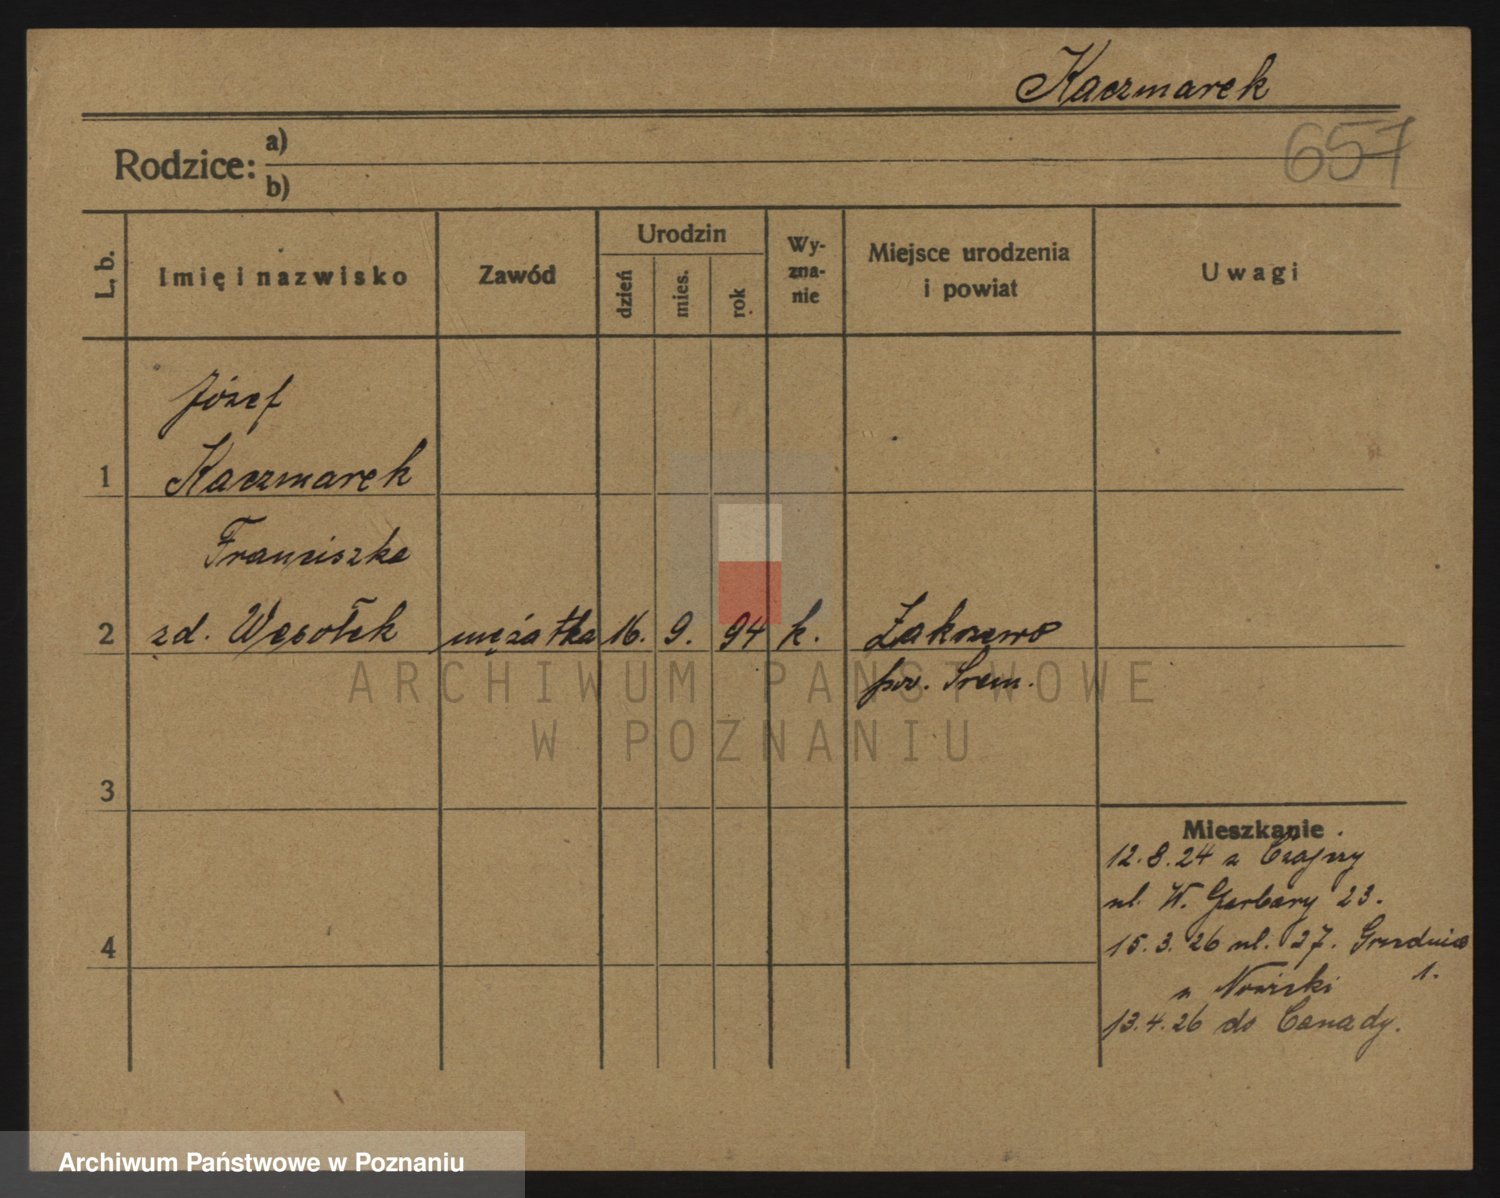 Kaczmarek
657
Rodzice: a)
b)
L. b.
Imię i nazwisko
Zawód
Urodzin
dzień
mies.
rok
Wy-
zna-
nie
Miejsce urodzenia
i powiat
Uwagi
Józef
1 Kaczmarek
Franciszka
2 zd. Wesołek mężatka 16. 9. 94 k. Zakrzewo
pow. Śrem.
ARCHIWUM PAŃSTWOWE
W POZNANIU
3
Mieszkanie.
12.8.24 z
ul. W. Garbary 23.
15.3.26 ul. 27. Grudnia
1.
u
4
13.4.26 do Canady.
Archiwum Państwowe w Poznaniu